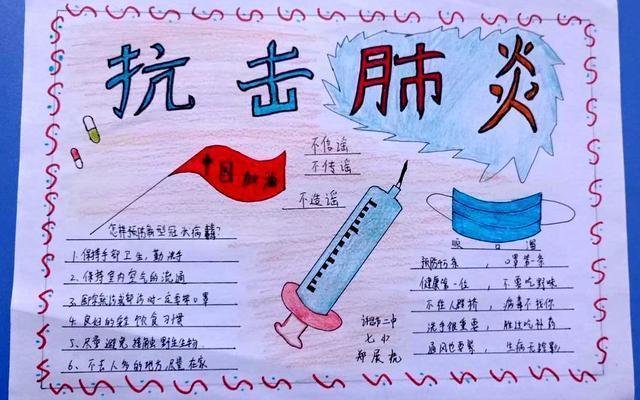 抗击肺炎
中国加油
不信谣
不传谣
不造谣
怎样预防新型冠状病毒?
1.保持手部卫生,勤洗手
2、保持室内空气的流通
3、要戴口罩
4、良好的 饮食习惯
5、尽量避免接触野生生物
6、不去人多的地方,尽量在家
戴口罩
预防 条,口罩第一条
健康第一位,不要吃野味
不往人群挤,病毒不找你
洗手很重要,胜过吃补药
通风也要紧,生病无踪影
二中
七
郑